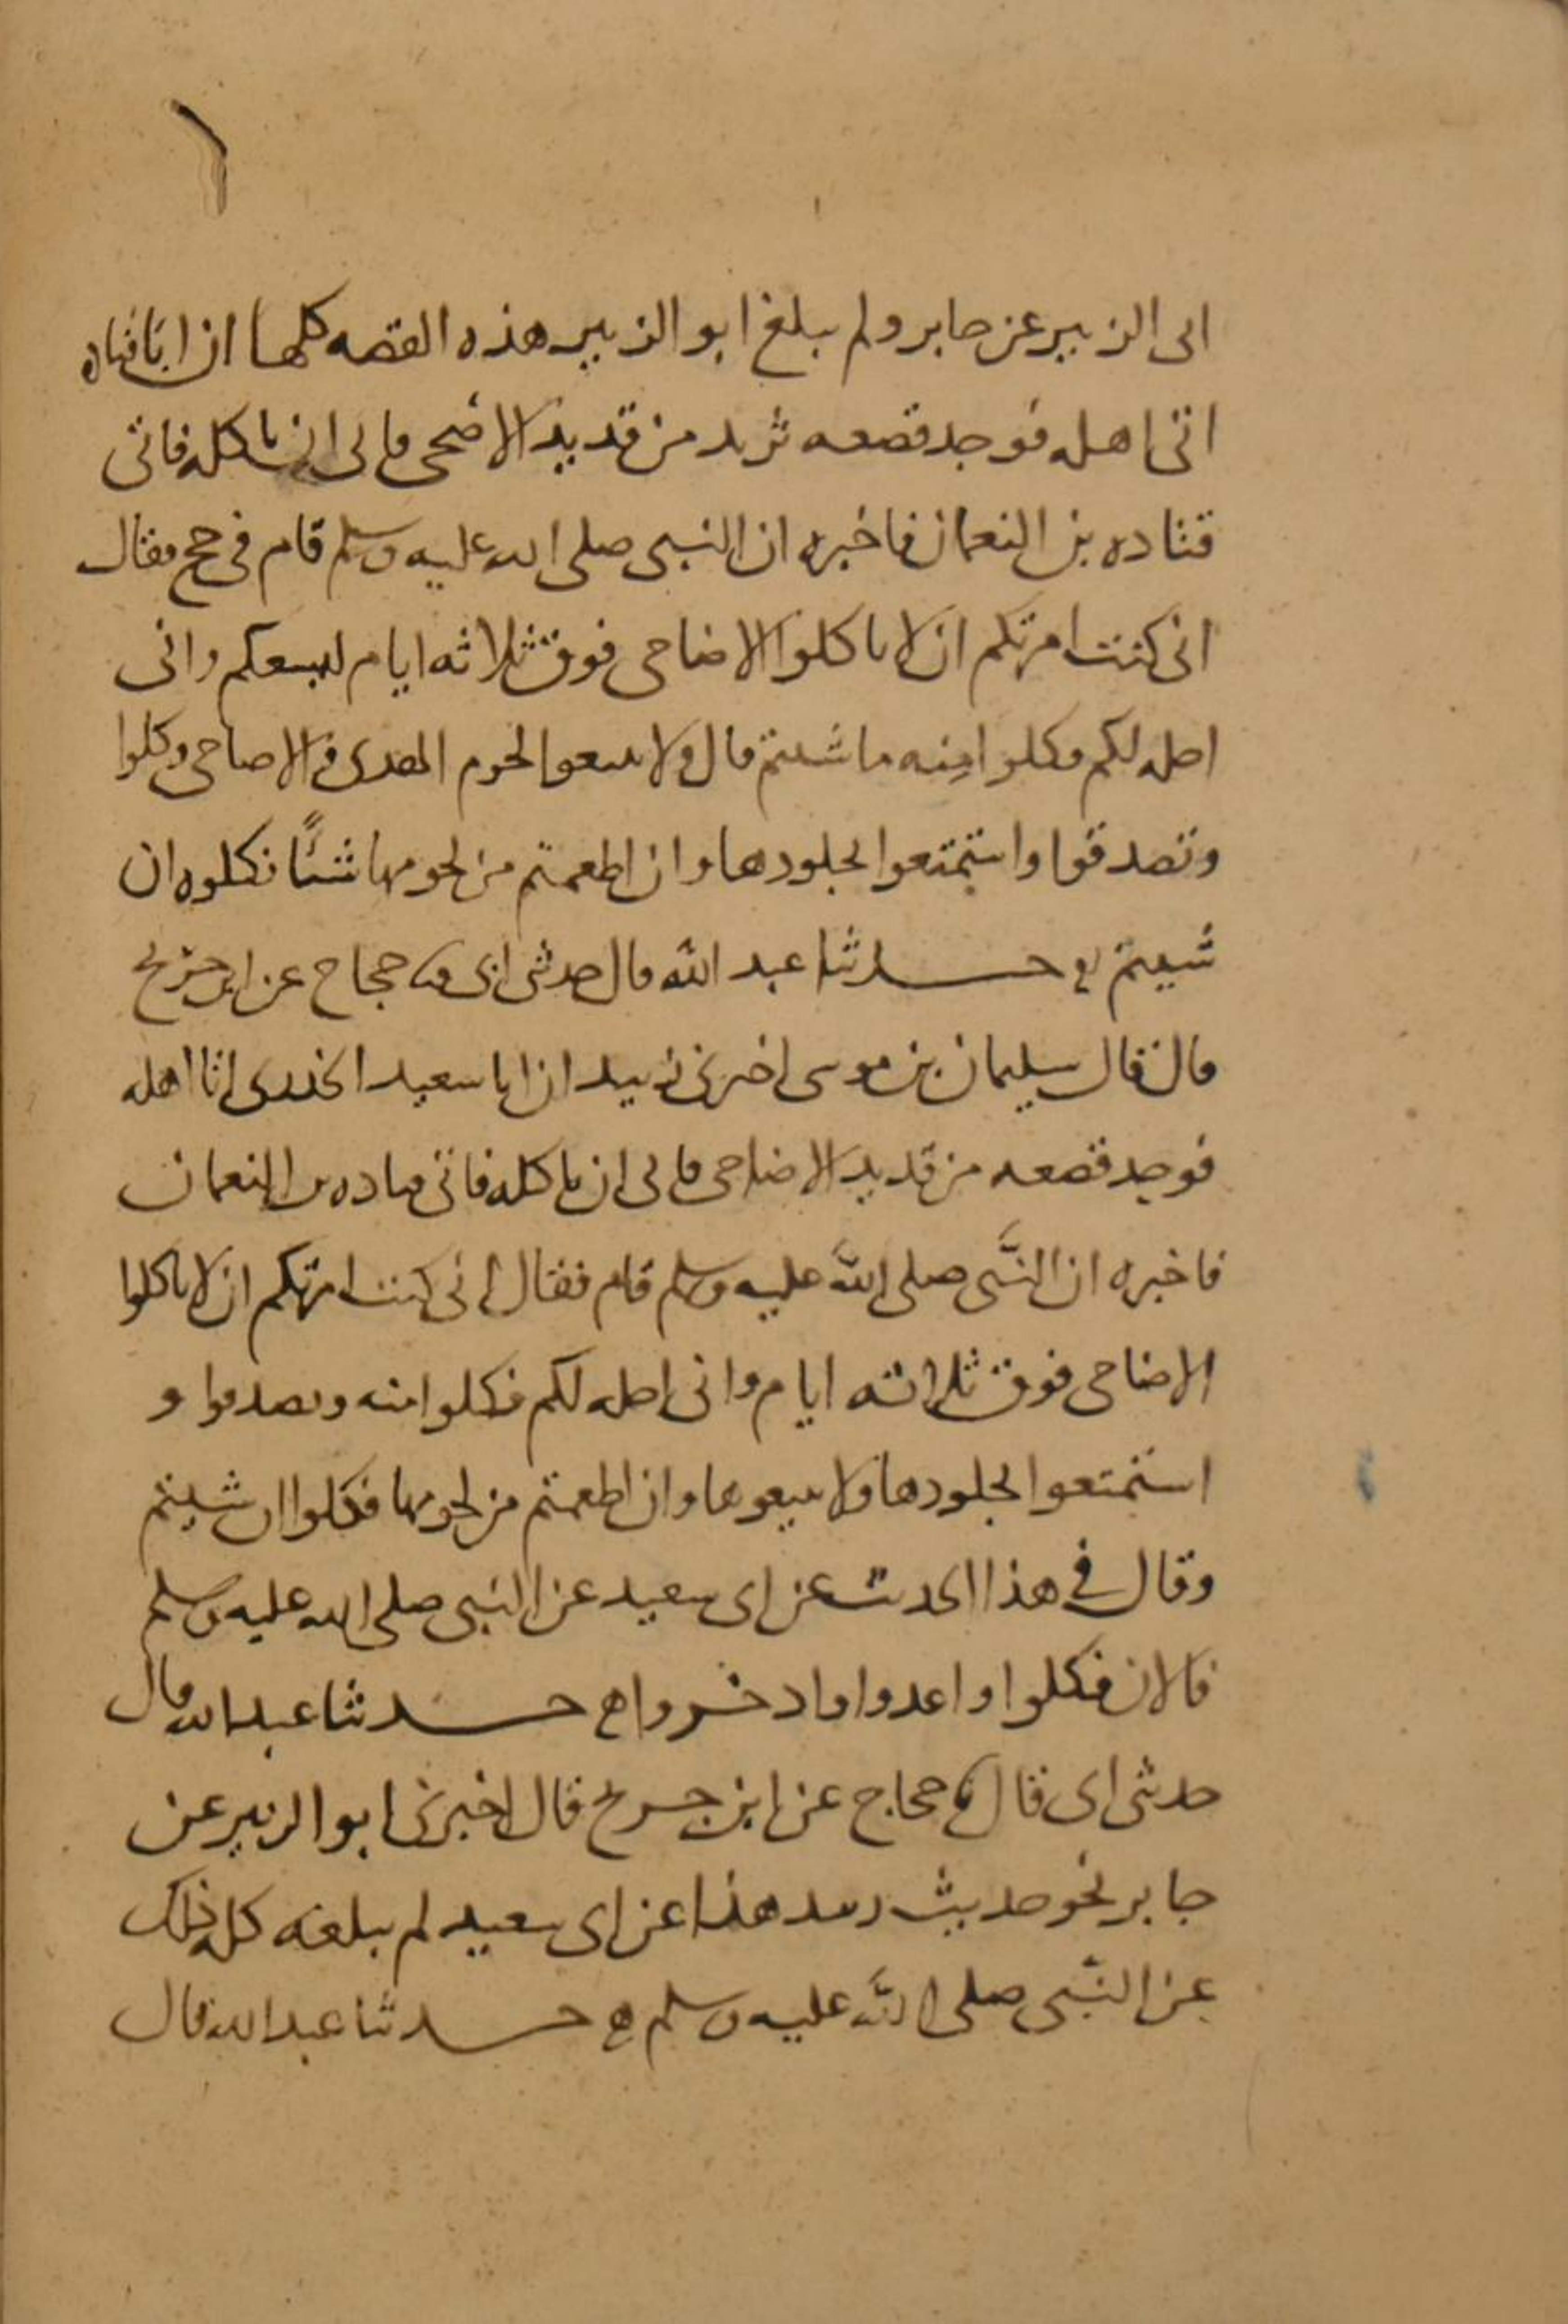 ابى الزبير عن جابر ولم يبلغ ابو الزبير هذه القصه كلها ان ابا قتاده
اتى اهله فوجد قصعه ثريد من قديد الاضحى فابى ان ياكله فاتى
قتاده بن النعمان فاخبره ان النبي صلى الله عليه وسلم قام في حج فقال
انى كنت امرتكم ان لا تاكلوا الاضاحى فوق ثلاثه ايام لتسعكم وانى
احله لكم فكلوا منه ما شئتم قال ولا تبيعوا لحوم الهدى والاضاحى وكلوا
وتصدقوا واستمتعوا بجلودها وان اطعمتم من لحومها شئا فكلوه ان
شيتم حدثنا عبد الله قال حدثنى ابى نا حجاج عن ابن جريج
قال قال سليمان بن موسى اخبرنى زبيد ان ابا سعيد الخدرى اتا اهله
فوجد قصعه من قديد الاضاحى فابى ان ياكله فاتى قتاده بن النعمان
فاخبره ان النبى صلى الله عليه وسلم قام فقال انى كنت امرتكم ان لا تاكلوا
الاضاحى فوق ثلاثه ايام وانى احله لكم فكلوا منه وتصدقوا و
استمتعوا بجلودها ولا تبيعوها وان اطعمتم من لحومها فكلوا ان شيتم
وقال في هذا الحديث عن ابى سعيد عن النبى صلى الله عليه وسلم
فالان فكلوا واعدوا وادخروا حدثنا عبد الله قال
حدثنى ابى قال نا حجاج عن ابن جريج قال اخبرنى ابو الزبير عن
جابر نحو حديث زبيد هذا عن ابى سعيد لم يبلغه كل ذلك
عن النبى صلى الله عليه وسلم حدثنا عبد الله قال